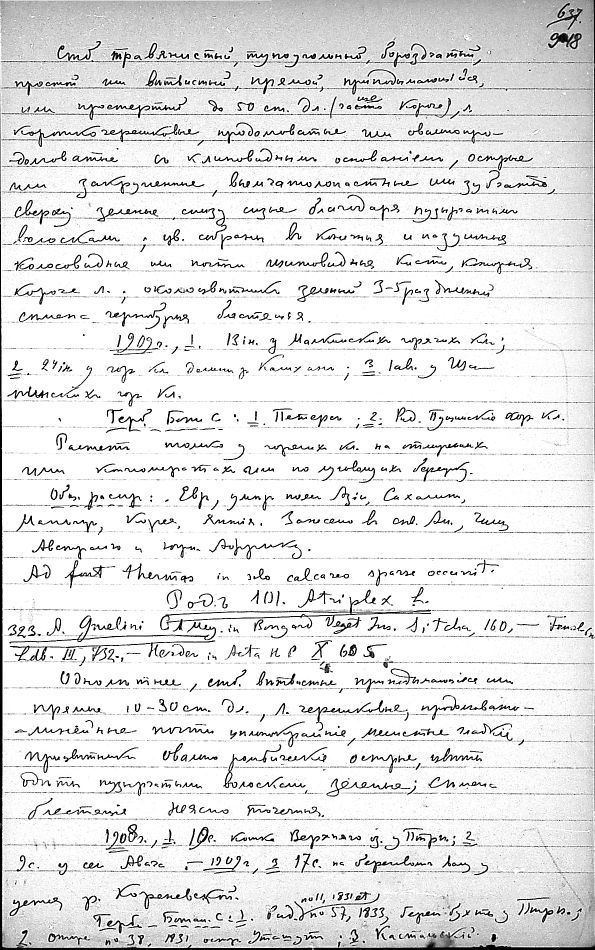 637.
948
Стб. травянистый, тупоугольный, бороздчатый,
простой или ветвистый, прямой, приподымающійся,
или простертый до 50 ст. дл. (чаще короче), л.
короткочерешковые, продолговатые или овально про-
долговатые съ клиновиднымъ основаніемъ, острые
или закругленные, выемчатолопастные или зубчатые,
сверху зеленые снизу сизые благодаря пузырчатымъ
волоскамъ; цв. собраны въ конечныя и пазушныя
колосовидные или почти кисти, которыя
короче л.; околоцвѣтникъ зеленый 3-5 раздѣльный
сѣмена блестящія.
1909г., 1. 13іюн. у Малкинскихъ горячихъ кл.;
2. 24іюн у гор кл долины р ; 3. 1 ав. у
гор. кл.
Герб. Бот. С: 1. Петерсъ; 2. Рид. Пущинскіе гор кл.
Растетъ только у горячихъ кл. на
или или по берегу.
Общ. распр.: Евр., умѣр. пояс Азіи, Сахалинъ,
Маньчжур, Корея, Японія. Занесено въ Ам., Чили
Австралію и южн. Африку.
Ad font thermas in solo calcareo sparse occurrit.
Родъ 101. Atriplex L.
323. A. Gmelini C A Mey. in Bongard Veget Ins. Sitcha, 160, —
Ldb. III, 732, — Herder in Acta H P X 605
Однолѣтнее, стб. вѣтвистые, приподымающіеся или
прямые 10-30 ст. дл., л. черешковые, продолговато-
-линейные почти цѣльнокрайніе, мясистые гладкіе,
прицвѣтники овально ромбическіе острые, цвѣты
одѣты пузырчатыми волосками, зеленые; сѣмена
блестящіе неясно точечныя.
1908г., 1. 10с. кошка Верхняго оз. у Птрп.; 2
9с. у сел Авача. — 1909г, 3 17с. на береговомъ валу у
устья р. Кореневской.
no 11, 1831 et
Герб. Ботан. С: 1. Рид. no 57, 1833, берег. бухты у Птрп.;
2. no 38, 1831, остр ; 3. Кастальскій.